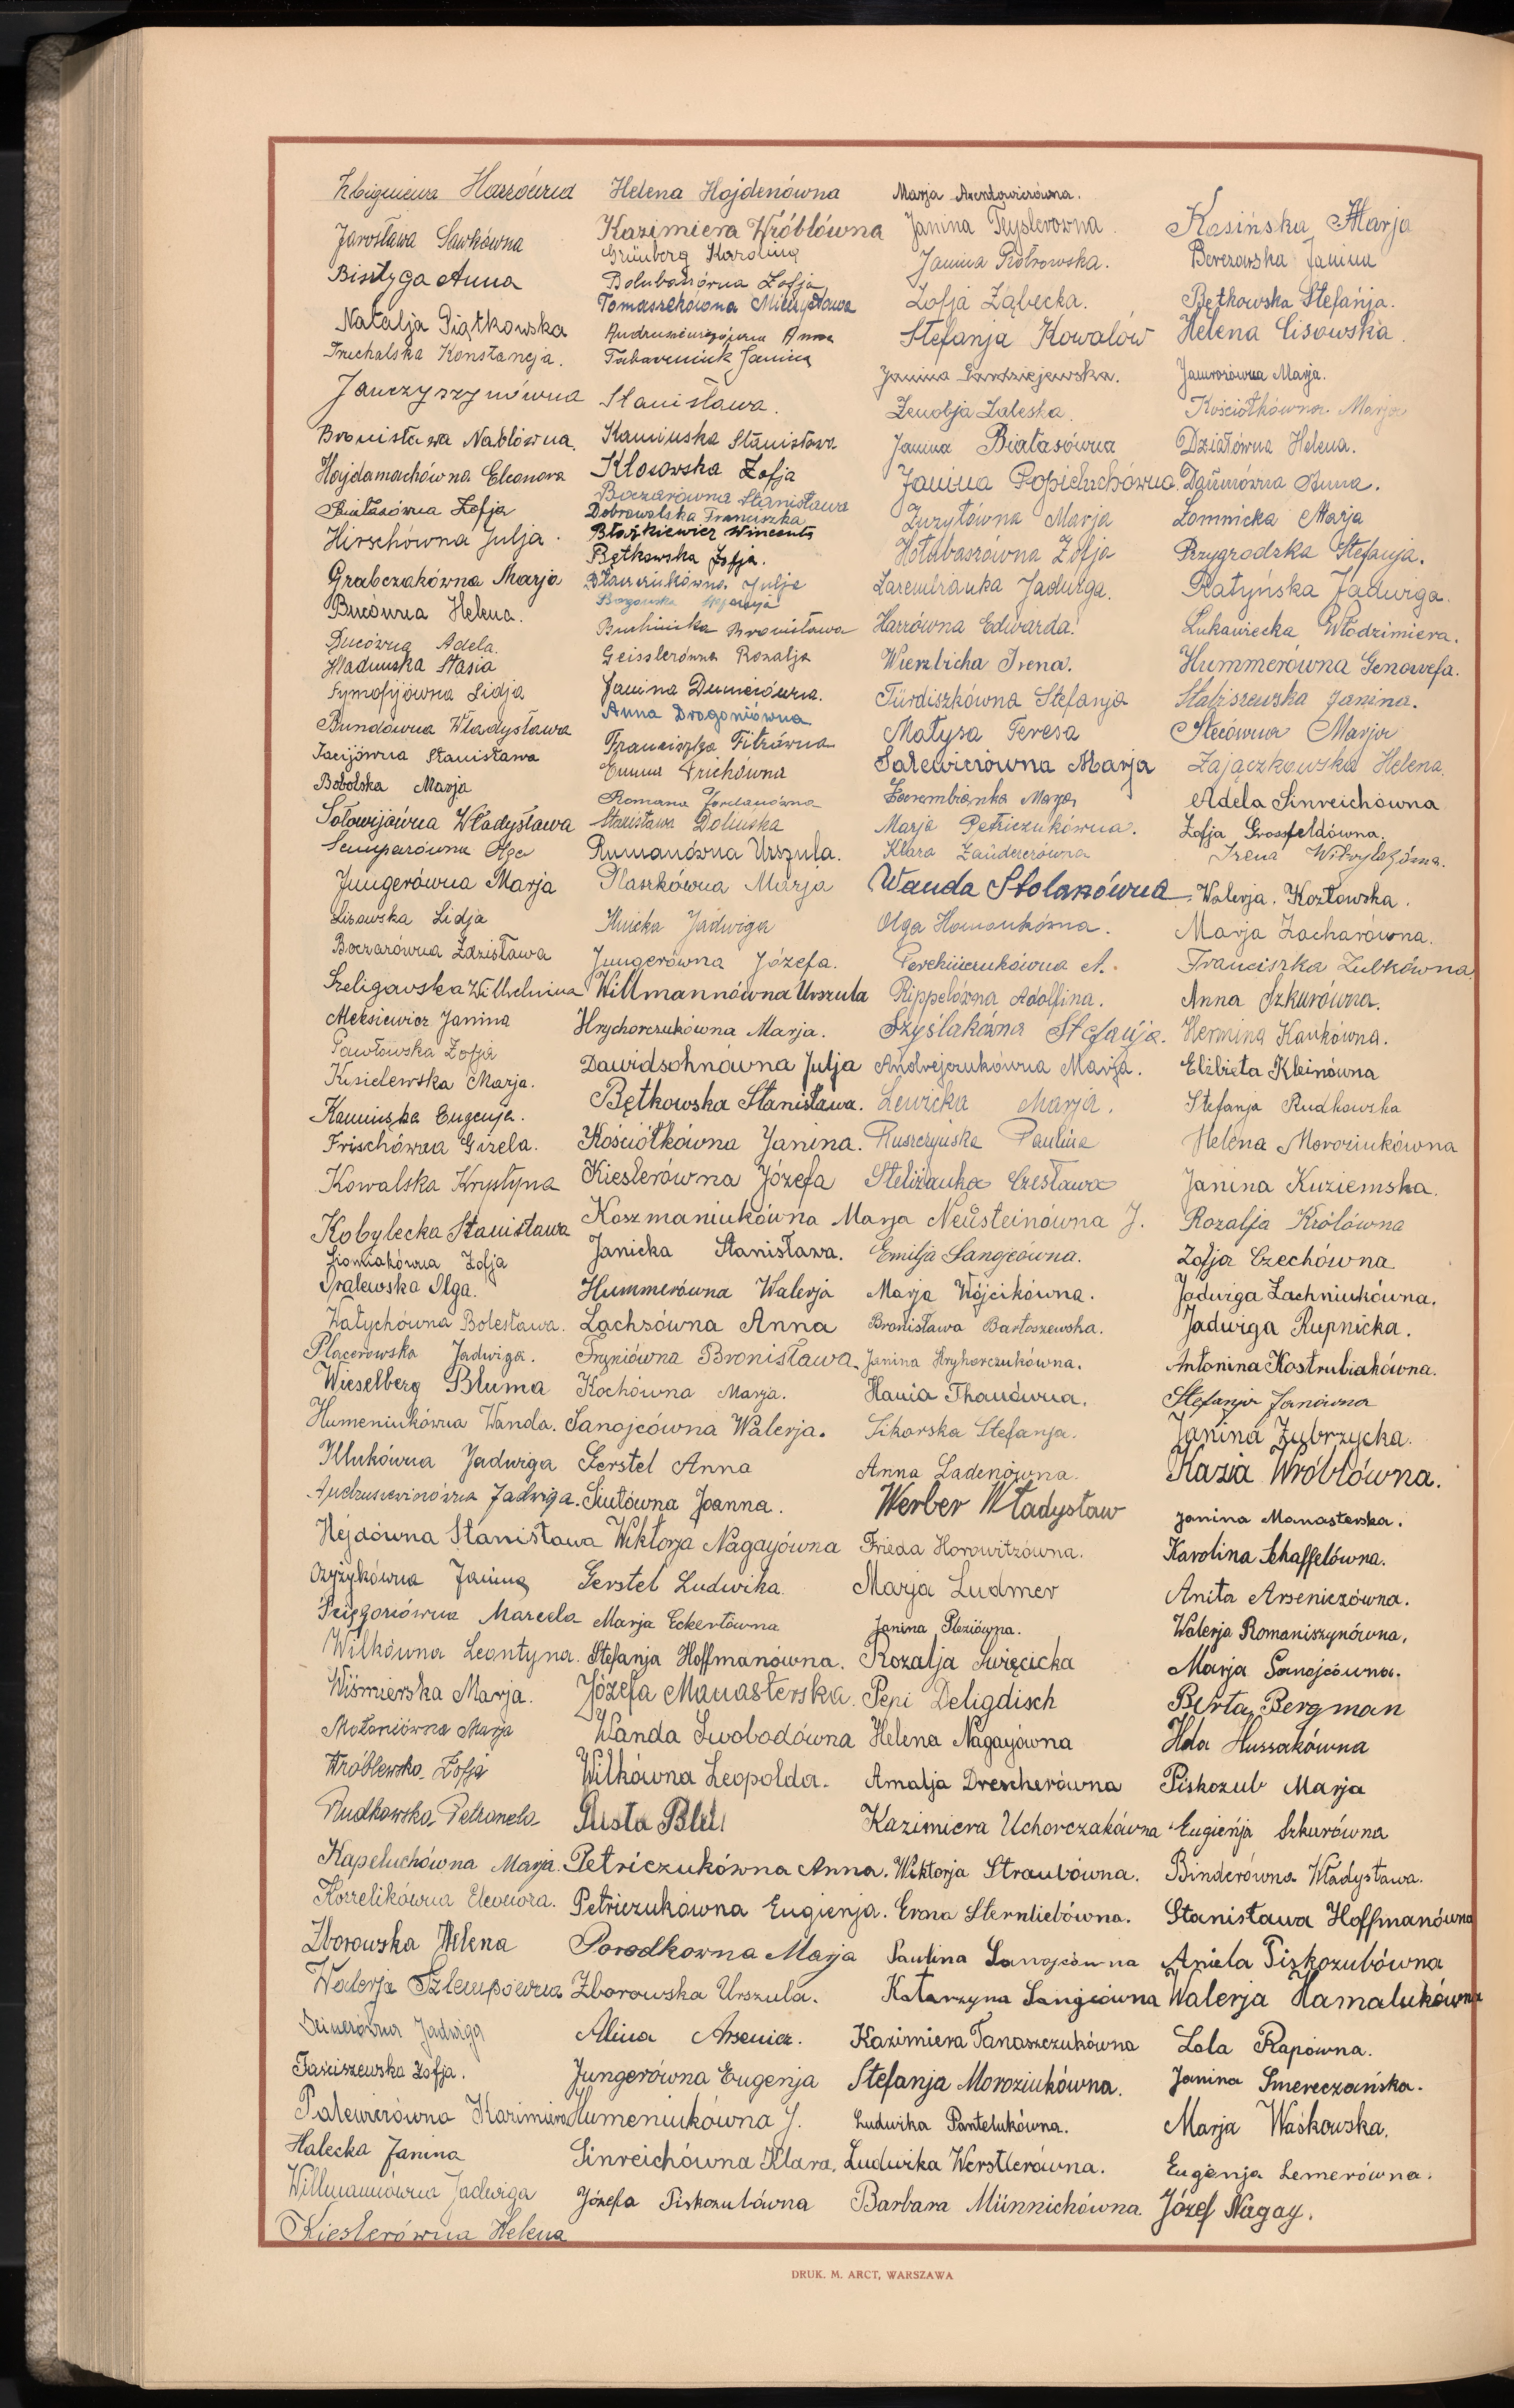 Harrówna
Jarosława Sawkówna
Bistyga Anna
Natalja Piątkowska
Konstancja.
Janczyszynówna
Bronisława Nablówna
Hajdamachówna Eleonora
Białasówna Zofja
Hirschówna Julja
Grabczakówna Marja
Bucówna Helena.
Ducówna Adela.
Stasia
Lidja
Bundówna Władysława
Stanisława
Bobolska Marja
Sołowijówna Władysława
Olga
Jungerówna Marja
Lisowska Lidja
Boczarówna Zdzisława
Szeligowska Wilhelmina
Aleksiewicz Janina
Pawłowska Zofja
Kisielewska Marja.
Kamińska Eugenja.
Frischówna Gizela.
Kowalska Krystyna
Kobylecka Stanisława
Zofja
Olga.
Wałychówna Bolesława.
Placerowska Jadwiga.
Wieselberg Bluma
Humeniukówna Wanda.
Jadwiga
Jadwiga.
Hejdówna Stanisława
Czyżykówna Janina
Marcela
Wilkówna Leontyna.
Wiśmierska Marja.
Marja
Wróblewska Zofja
Rudkowska Petronela
Kapeluchówna Marja.
Korzelikówna Eleonora.
Zborowska Helena
Walerja Szlempówna
Jadwiga
Zofja.
Kazimiera
Halecka Janina
Willmannówna Jadwiga
Kieslerówna Helena
Helena Hajdenówna
Kazimiera Wróblówna
Grünberg Karolina
Zofja
Tomaszkówna Mieczysława
Anna
Tabaczniuk Janina
Stanisława.
Kamińska Stanisława
Kłosowska Zofja
Boczarówna Stanisława
Dobrowolska Franciszka
Błażkiewicz Wincenta
Bętkowska Zofja.
Julja
Bronisława
Geisslerówna Rozalja
Janina
Anna Dragoniówna
Franciszka
Emma Frichówna
Romana Jordanówna
Stanisława Dolińska
Rumanówna Urszula.
Płaszkówna Marja
Ilnicka Jadwiga
Jungerówna Józefa.
Willmannówna Urszula
Hrychorczukówna Marja.
Dawidsohnówna Julja
Bętkowska Stanisława.
Kościółkówna Janina.
Kieslerówna Józefa
Koszmaniukówna Marja
Janicka Stanisława.
Hummerówna Walerja
Lachsówna Anna
Bronisława
Kochówna Marja.
Sanojcówna Walerja.
Gerstel Anna
Siutówna Joanna.
Wiktorja Nagayówna
Gerstel Ludwika.
Marja Eckertówna
Stefanja Hoffmanówna.
Józefa Manasterska.
Wanda Swobodówna
Wilkówna Leopolda.
Rusta
Petriczukówna Anna.
Petriczukówna Eugienja.
Porodkowna Marja
Zborowska Urszula.
Alina Arsenicz.
Jungerówna Eugenja
Humeniukówna J.
Sinreichówna Klara.
Józefa Piskozubówna
Marja Axentowiczówna.
Janina Teyslerowna
Janina Piotrowska.
Zofja Ząbecka.
Stefanja Kowalów
Janina Gardziejewska.
Zenobja Zaleska.
Janina Białasówna
Janina Popieluchówna.
Zurytówna Marja
Hołubaszówna Zofja
Zarembianka Jadwiga.
Harrówna Edwarda.
Wierzbicka Irena.
Türdiszkówna Stefanja
Matysa Teresa
Salewiczówna Marja
Zarembianka Marja
Marja Petriczukówna.
Klara Zaüdererówna
Wanda Stolarzówna
Olga Homoukówna.
Perchiczukówna A.
Rippelówna Adolfina.
Szyślakówna Stefanja.
Andrejczukówna Marja.
Lewicka Marja.
Ruszczyńska Paulina
Steliżanka Czesława
Neüsteinówna J.
Emilja Sanojcówna.
Marja Wójcikówna.
Bronisława Bartoszewska.
Janina Hryhorczukówna.
Hania Thauówna.
Sikorska Stefanja.
Anna Ladenówna.
Werber Władysław
Frieda Horowitzówna.
Marja Ludmer
Janina Śleziówna.
Rozalja Święcicka
Pepi Deligdisch
Helena Nagayówna
Amalja Drescherówna
Kazimiera Uchorczakówna
Wiktorja Straubówna.
Erna Sternliebówna.
Paulina Sanojcówna
Katarzyna Sanojcówna
Kazimiera Tanaszczukówna
Stefanja Moroziukówna.
Ludwika Pantelukówna.
Ludwika Werstlerówna.
Barbara Münnichówna.
Kasińska Marja
Berezowska Janina
Bętkowska Stefanja.
Helena Cisowska.
Jaworówna Marja.
Kościółkówna Marja
Działówna Helena.
Anna.
Łomnicka Marja
Przygrodzka Stefanja.
Ratyńska Jadwiga.
Łukawiecka Włodzimiera.
Hummerówna Genowefa.
Janina.
Stecówna Marja
Zajączkowska Helena.
Adela Sinreichówna
Zofja Grossfeldówna.
Irena
Walerja Kozłowska.
Marja Zacharówna.
Franciszka Zubkówna
Anna Szkurówna.
Hermina Kaukówna.
Elżbieta Kleinówna
Stefanja Rudkowska
Helena Moroziukówna
Janina Kuziemska.
Rozalja Królówna
Zofja Czechówna
Jadwiga Lachniukówna.
Jadwiga Rupnicka.
Antonina Kostrubiakówna.
Stefanja Janówna
Janina Zybrzycka.
Kazia Wróblówna.
Janina Manasterska.
Karolina Schaffelówna.
Anita Arseniczówna.
Walerja Romaniszynówna.
Marja Sanojcówna.
Berta Bergman
Hela Hussakówna
Piskozub Marja
Eugieńja Szkurówna
Binderówna Władysława.
Stanisława Hoffmanówna
Aniela Piskozubówna
Walerja Hamalukówna
Lola Rapówna.
Janina Smereczańska.
Marja Waśkowska.
Eugenja Lemerówna.
Józef Nagay.
DRUK. M. ARCT, WARSZAWA